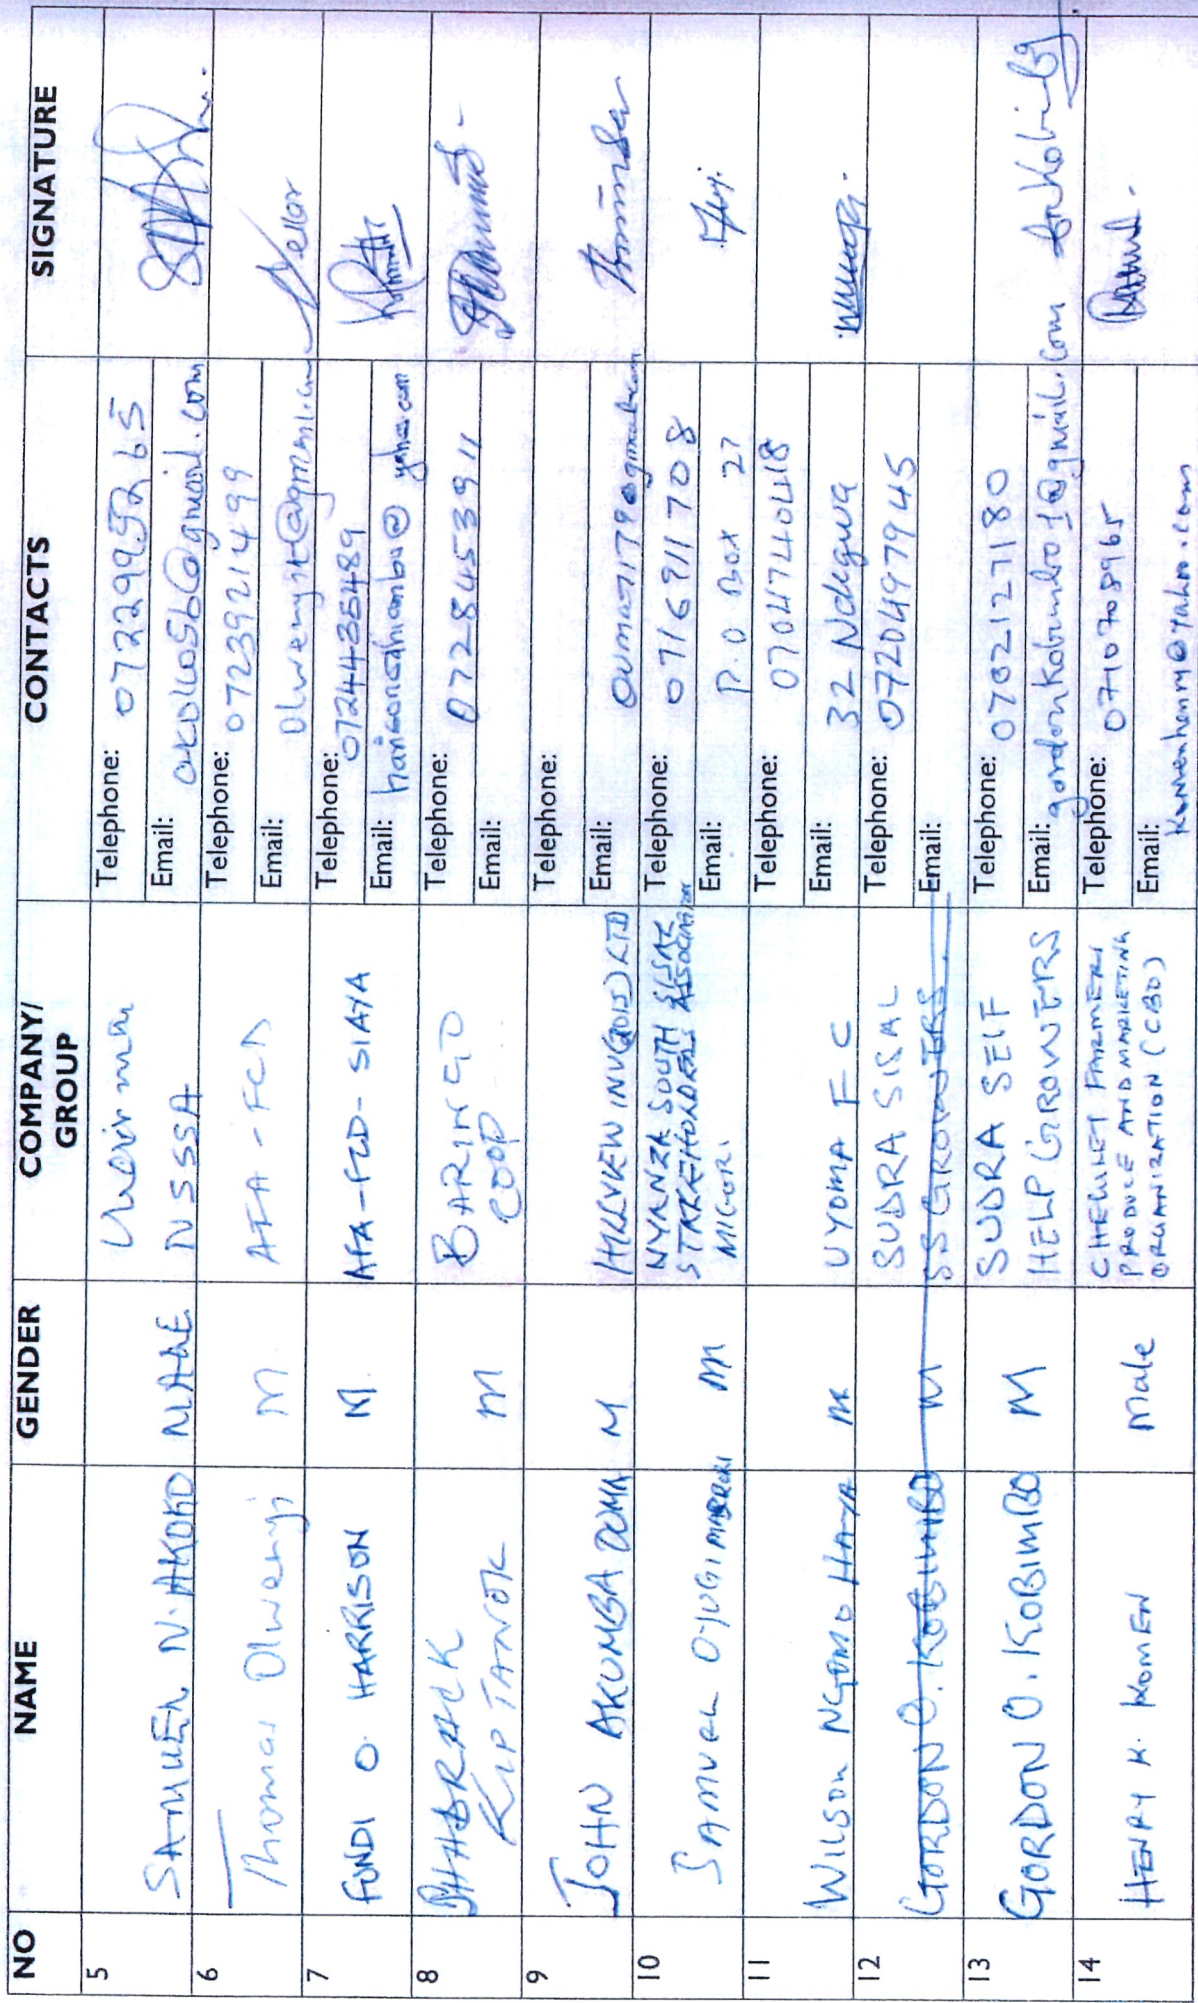 NO NAME GENDER COMPANY/ GROUP CONTACTS SIGNATURE
5 SAMUEL N. AKOKO MALE Chairman NSSSA
Telephone: 0722995265
Email: @gmail.com
6 Thomas Olwenyi M AFA-FCD
Telephone: 0723921499
Email:
7 FUNDI O. HARRISON M. AFA-FCD-SIAYA
Telephone: 0724435489
Email: @yahoo.com
8 KIPTANOK M BARINGO COOP
Telephone: 0728453911
Email:
9 JOHN AKUMBA OUMA M HILLVIEW INV(2015) LTD
Telephone:
Email:
10 SAMUEL OJUGI M NYANZA SOUTH SISAL STAKEHOLDERS ASSOCIATION MIGORI
Telephone: 0716911708
Email: P.O BOX 27
11 WILSON NGOMO M UYOMA F C
Telephone: 0704740418
Email: 32 Ndegwa
12 GORDON O. KOBIMBO M SUDRA SISAL S.S GROWERS
Telephone: 0720497945
Email:
13 GORDON O. KOBIMBO M SUDRA SELF HELP GROWERS
Telephone: 0702127180
Email: gordonkobimbo1@gmail.com
14 HENRY K. KOMEN Male FARMERS PRODUCE AND MARKETING ORGANIZATION (CBO)
Telephone: 0710708965
Email: Komenhenry@Yahoo.com